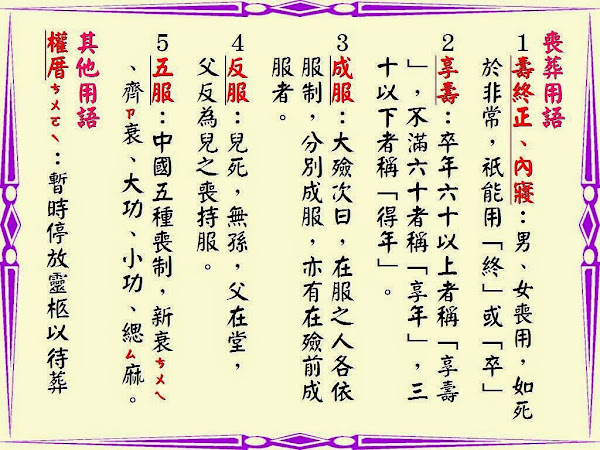 喪葬用語
1壽終正、內寢：男、女喪用，如死
於非常，祇能用「終」或「卒」
2享壽：卒年六十以上者稱「享壽
」，不滿六十者稱「享年」，三
十以下者稱「得年」。
3成服：大殮次日，在服之人各依
服制，分別成服，亦有在殮前成
服者。
4反服：兒死，無孫，父在堂，
父反為兒之喪持服。
5五服：中國五種喪制，新衰ㄘㄨㄟ
、齊ㄗ衰、大功、小功、緦ㄙ麻。
其他用語
權厝ㄘㄨㄛˋ：暫時停放靈柩以待葬